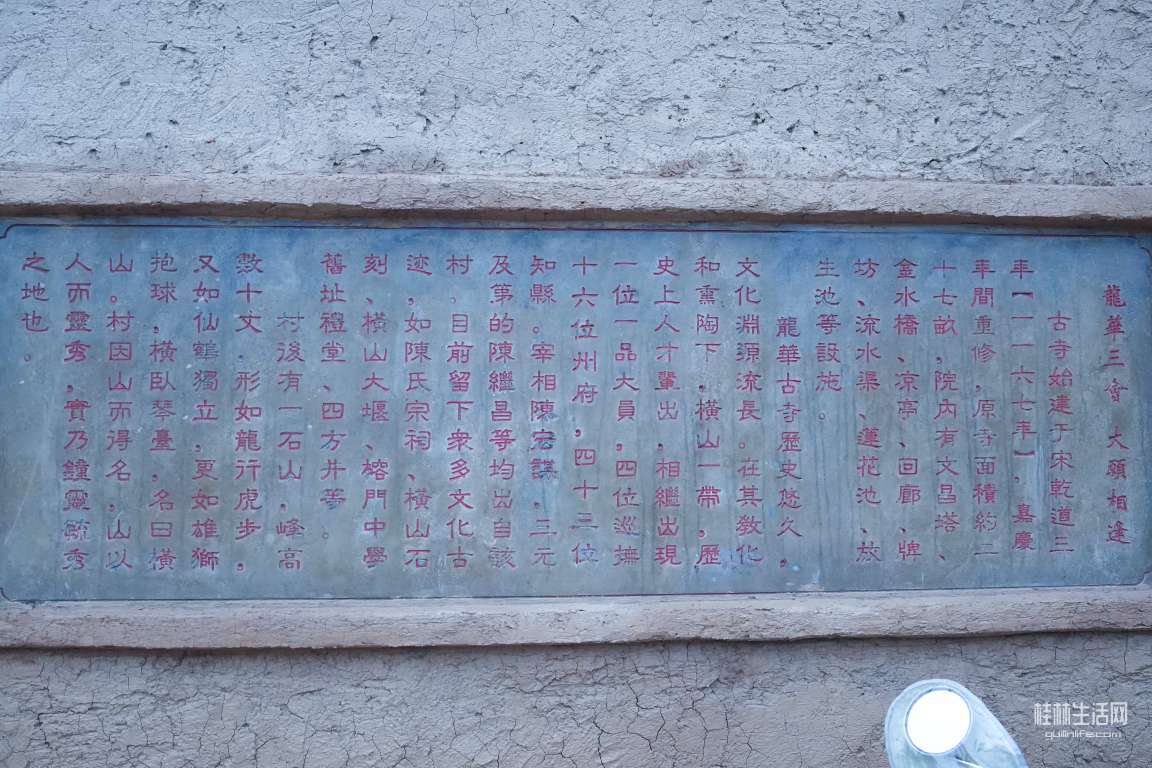 龍華三會 大願相逢
古寺始建于宋乾道三
年【一一六七年】,嘉慶
年間重修,原寺面積約二
十七畝,院內有文昌塔、
金水橋、凉亭、回廊、牌
坊、流水渠、蓮花池、放
生池等設施。
龍華古寺歷史悠久,
文化淵源流長。在其教化
和熏陶下,橫山一帶,歷
史上人才輩出,相繼出現
一位一品大員,四位巡撫
十六位州府,四十三位
知縣。宰相陳宏謀,三元
及第的陳繼昌等均出自該
村。目前留下衆多文化古
迹,如陳氏宗祠、橫山石
刻、橫山大堰、榕門中學
舊址禮堂、四方井等。
村後有一石山,峰高
數十丈,形如龍行虎步,
又如仙鶴獨立,更如雄獅
抱球,橫臥琴臺,名曰橫
山。村因山而得名,山以
人而靈秀,實乃鐘靈毓秀
之地也。
桂林生活网
guilinlife.com